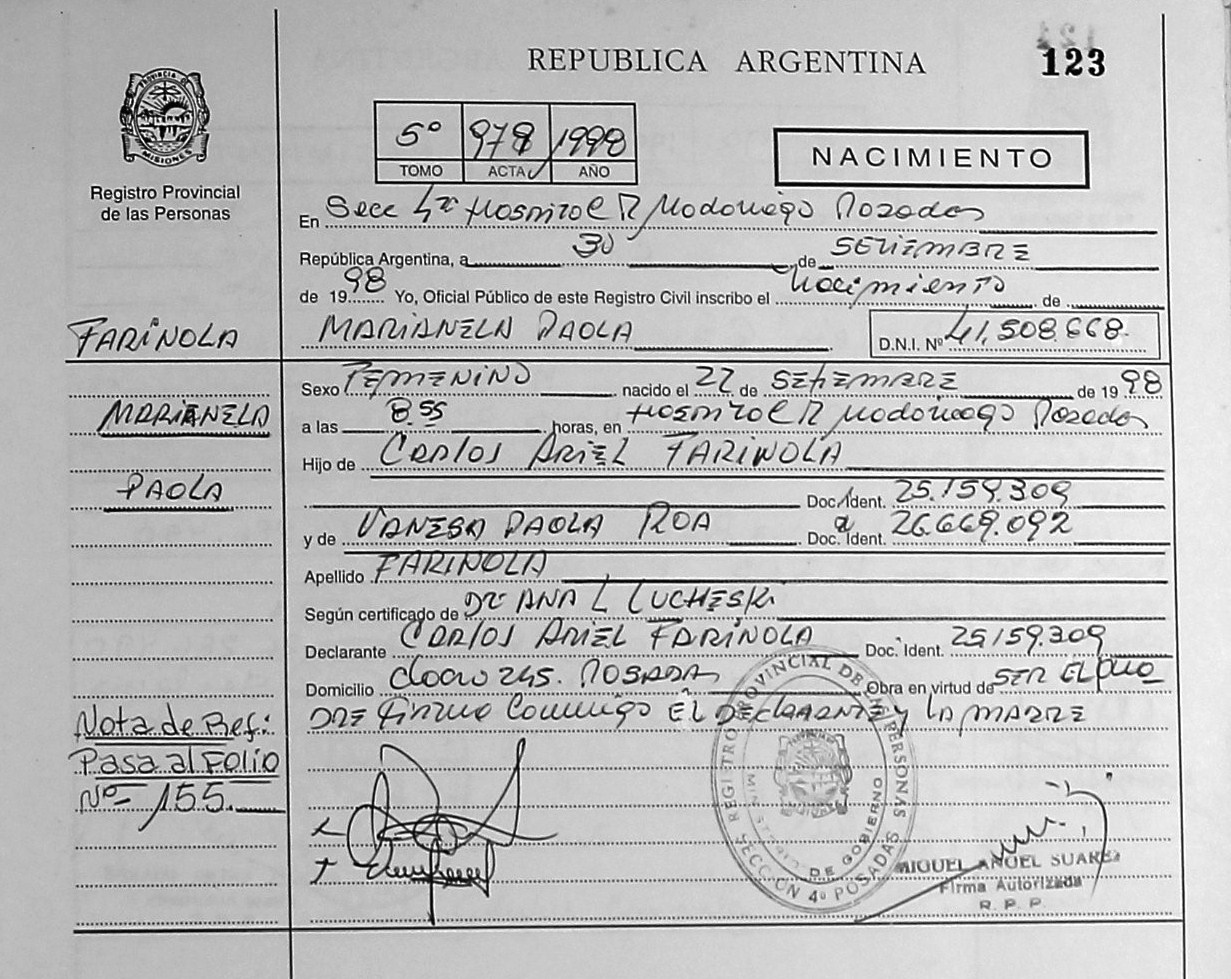 REPUBLICA ARGENTINA
123
PROVINCIA DE MISIONES
Registro Provincial
de las Personas
5º 978 1998
TOMO ACTA AÑO
NACIMIENTO
En Secc 4ta Hospital R Madariaga Posadas
República Argentina, a 30 de SETIEMBRE
de 1998 Yo, Oficial Público de este Registro Civil inscribo el Nacimiento de
FARINOLA
MARIANELA PAOLA D.N.I. Nº 41,508.668.
Sexo FEMENINO nacido el 22 de SETIEMBRE de 1998
MARIANELA
a las 8.55 horas, en Hospital R Madariaga Posadas
Hijo de CARLOS ARIEL FARINOLA
PAOLA
Doc. Ident. 25.159.309
y de VANESA PAOLA ROA Doc. Ident. 26.669.092
Apellido FARINOLA
Según certificado de Dra ANA L LUCHESKI
Declarante CARLOS ARIEL FARINOLA Doc. Ident. 25159.309
Domicilio 245. POSADAS Obra en virtud de SER EL PA
DRE Firma Conmigo EL DECLARANTE y LA MADRE
Nota de Ref:
Pasa al Folio
Nº 155.
REGISTRO PROVINCIAL DE LAS PERSONAS
MINISTERIO DE GOBIERNO
SECCIÓN 4º POSADAS
MIGUEL ANGEL SUAREZ
Firma Autorizada
R. P. P.